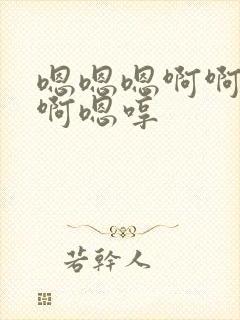 嗯嗯嗯啊啊
啊嗯哼
若幹人